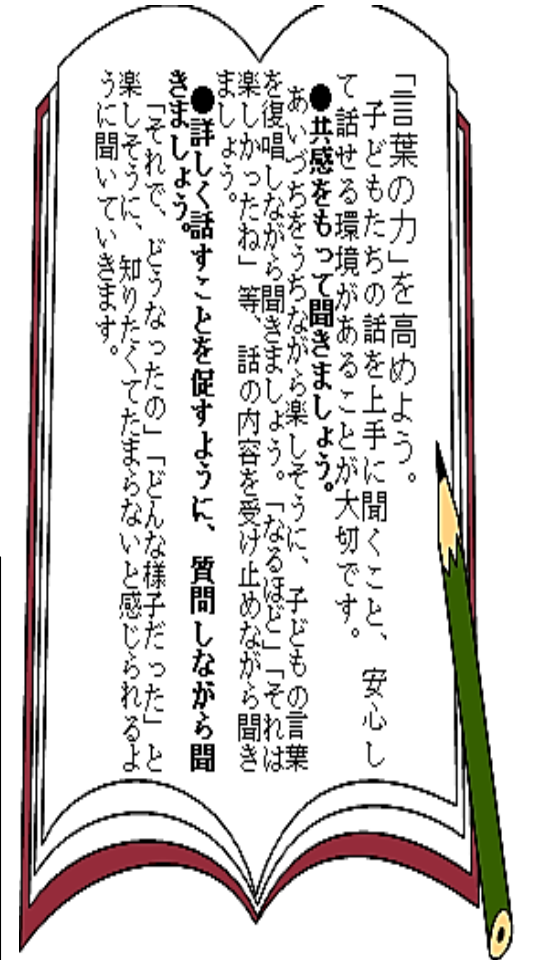 「言葉の力」を高めよう。
子どもたちの話を上手に聞くこと、安心し
て話せる環境があることが大切です。
●共感をもって聞きましょう。
あいづちをうちながら楽しそうに、子どもの言葉
を復唱しながら聞きましょう。「なるほど」「それは
楽しかったね」等、話の内容を受け止めながら聞き
ましょう。
●詳しく話すことを促すように、質問しながら聞
きましょう。
「それで、どうなったの」「どんな様子だった」と
楽しそうに、知りたくてたまらないと感じられるよ
うに聞いていきます。